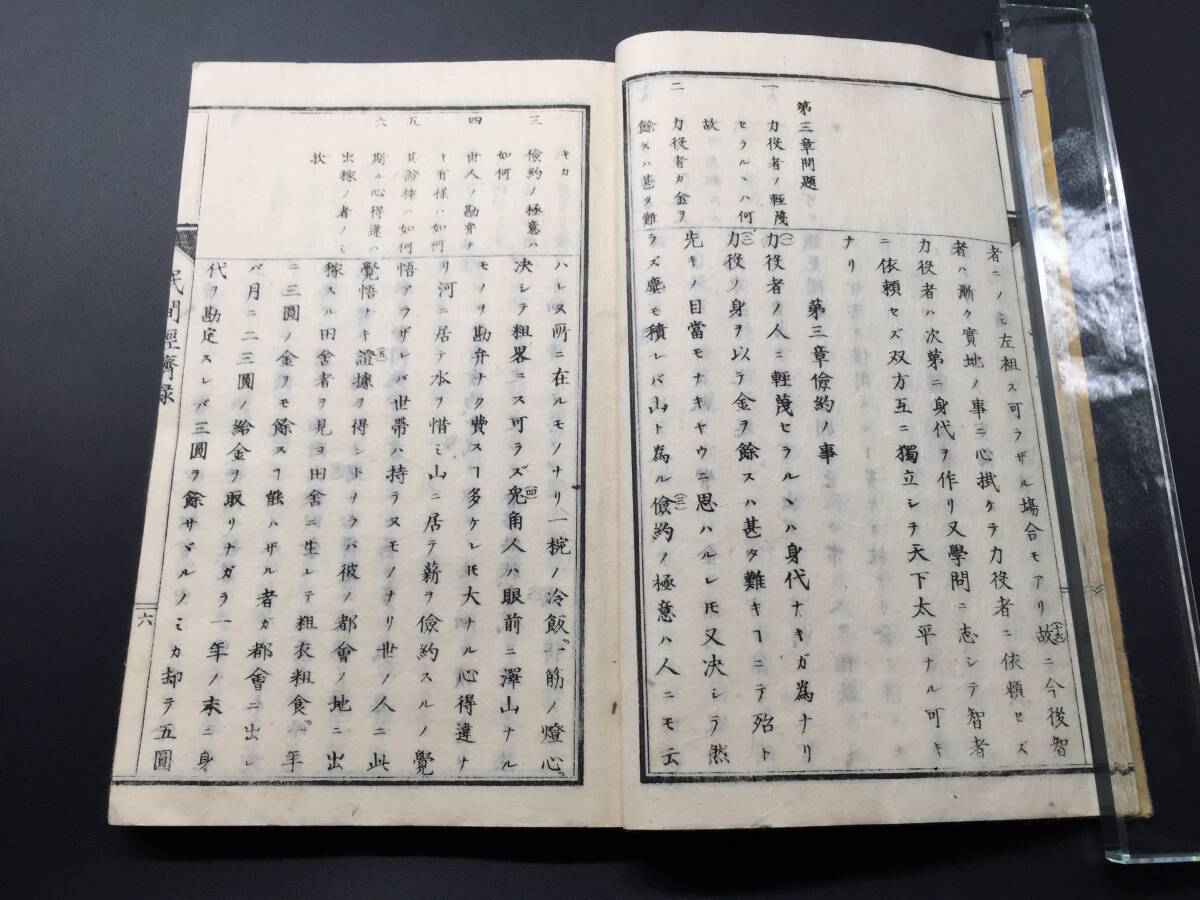 者ニノミ左袒ス可ラザル塲合モアリ(十九)故ニ今後智
者ハ漸ク實地ノ事ニ心掛ケテ力役者ニ依頼セズ
力役者ハ次第ニ身代ヲ作リ又學問ニ志シテ智者
ニ依頼セズ双方互ニ獨立シテ天下太平ナル可キ
ナリ
第三章問題
第三章儉約ノ事
一 力役者ノ輕蔑
セラルヽハ何
故
二 力役者ガ金ヲ
餘スハ甚タ難
(一)力役者ノ人ニ輕蔑セラルヽハ身代ナキガ為ナリ
(二)力役ノ身ヲ以テ金ヲ餘スハ甚タ難キヿニテ殆ト
先キノ目當モナキヤウニ思ハルレ𪜈又决シテ然
ラズ塵モ積レバ山ト為ル(三)儉約ノ極意ハ人ニモ云
キカ
三 儉約ノ極意ハ
如何
四 世人ノ勘弁ナ
キ有様ハ如何
五 其證拠ハ如何
六 期ル心得違ハ
出稼ノ者ノミ
歟
ハレヌ所ニ在ルモノナリ一椀ノ冷飯、一筋ノ燈心。
决シテ粗畧ニス可ラズ(四)兎角人ハ眼前ニ澤山ナル
モノヲ勘弁ナク費スヿ多ケレ𪜈大ナル心得違ナ
リ河ニ居テ水ヲ惜ミ山ニ居テ薪ヲ儉約スルノ覺
悟アラザレバ世帯ハ持テヌモノナリ(五)世ノ人ニ此
覺悟ナキ證據ヲ得ントナラバ彼ノ都會ノ地ニ出
稼スル田舎者ヲ見ヨ田舎ニ生レテ粗衣粗食。年
ニ三圓ノ金ヲモ餘スヿ能ハザル者ガ都會ニ出レ
バ月ニ二三圓ノ給金ヲ取リナガラ一年ノ末ニ身
代ヲ勘定スレバ三圓ヲ餘サヾルノミカ却テ五圓
民間經濟録
六